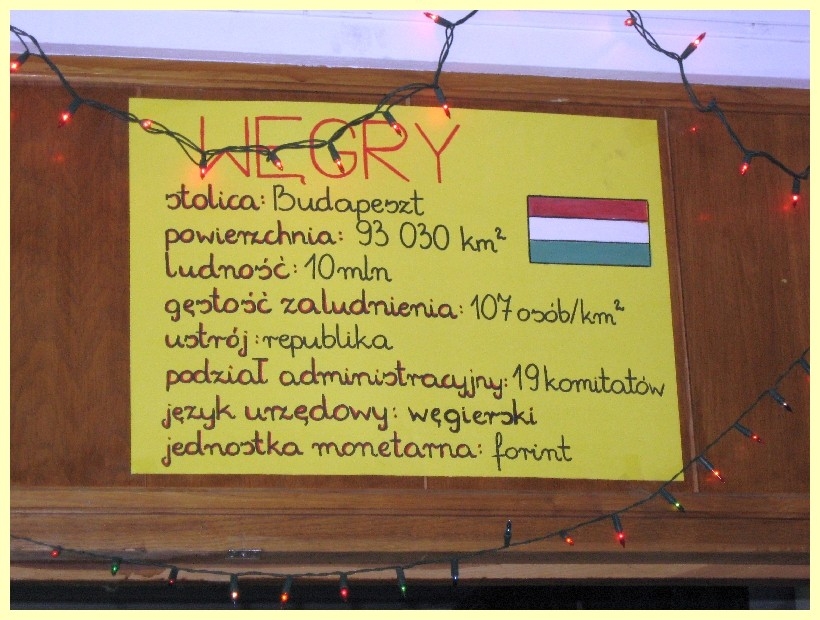 WĘGRY
stolica: Budapeszt
powierzchnia: 93 030 km²
ludność: 10 mln
gęstość zaludnienia: 107 osób/km²
ustrój: republika
podział administracyjny: 19 komitatów
język urzędowy: węgierski
jednostka monetarna: forint